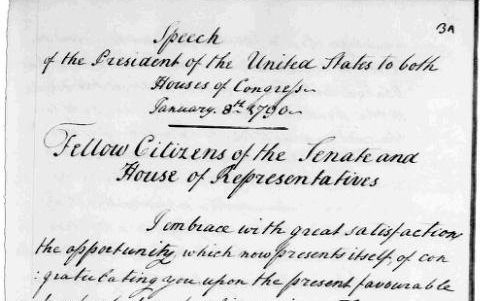 3A
Speech
of the President of the United States to both
Houses of Congress
January. 8th. 1790
Fellow Citizens of the Senate and
House of Representatives
I embrace with great satisfaction
the opportunity, which now presents itself, of con
:gratulating you upon the present favourable